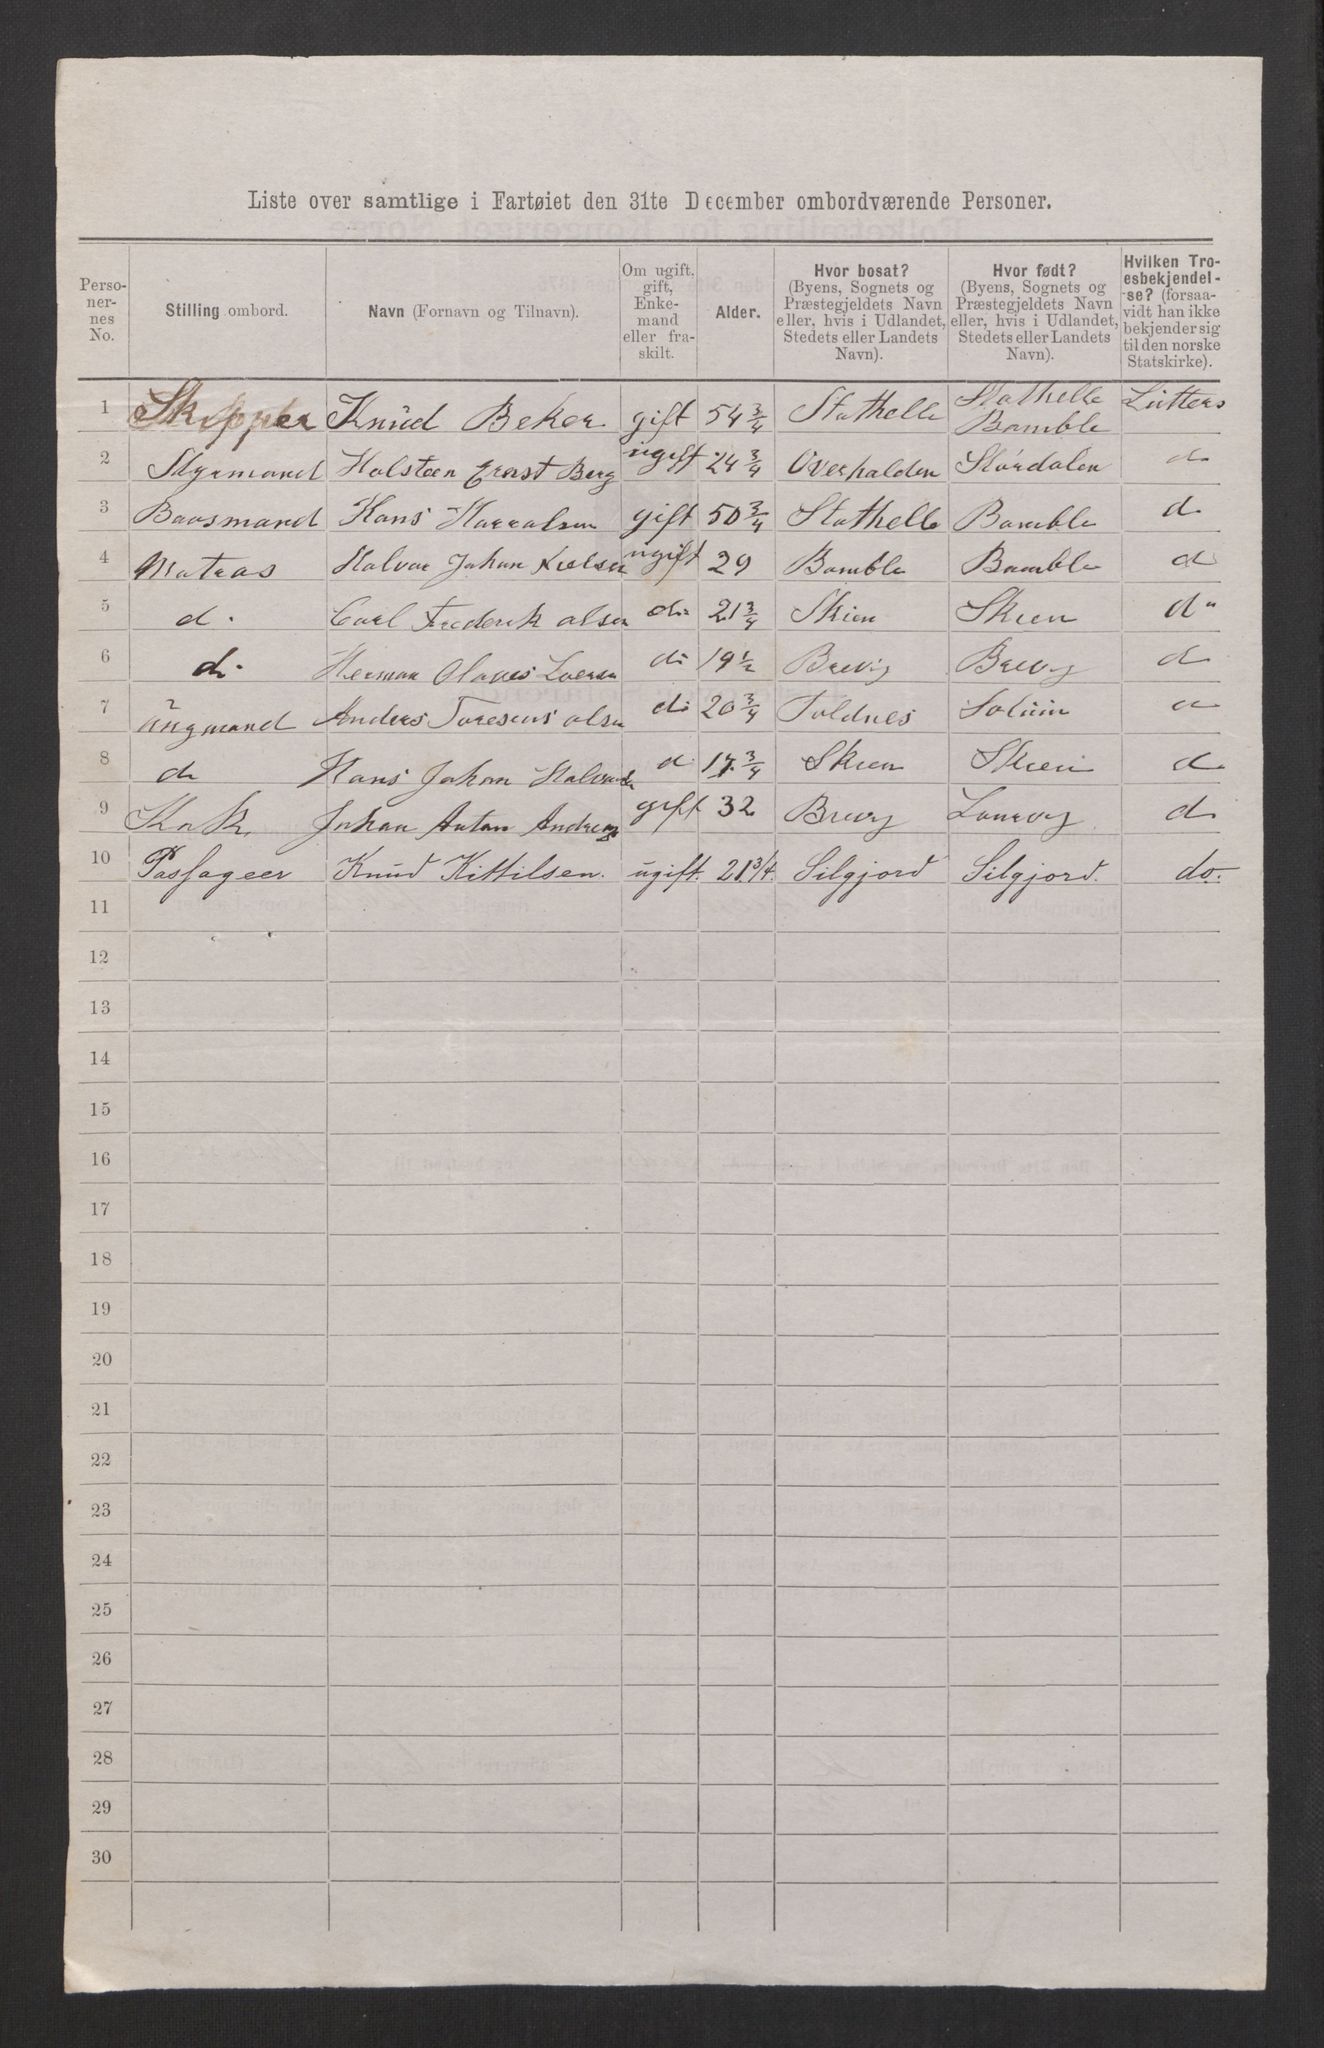 Liste over samtlige i Fartøiet den 31te December ombordværende Personer.
Perso-
ner-
nes
No.
Stilling ombord.
Navn (Fornavn og Tilnavn).
Om ugift,
gift,
Enke-
mand
eller fra-
skilt.
Alder.
Hvor bosat?
(Byens, Sognets og
Præstegjeldets Navn
eller, hvis i Udlandet,
Stedets eller Landets
Navn).
Hvor født?
(Byens, Sognets og
Præstegjeldets Navn
eller, hvis i Udlandet,
Stedets eller Landets
Navn).
Hvilken Tro-
esbekjendel-
se? (forsaa-
vidt han ikke
bekjender sig
til den norske
Statskirke).
1 Skipper Knüd Beker gift 54 3/4 Stathelle Stathelle Bamble Lütters
2 Styrmand Halsteen Ernst Berg ugift 24 3/4 Overhalden Stördalen d
3 Baasmand Hans gift 50 3/4 Stathelle Bamble d
4 Matras Halvor Johan Nielsen ugift 29 Bamble Bamble d
5 d. Carl Frederik olsen do 21 3/4 Skien Skien do
6 do Herman Olaves do 19 1/2 Brevig Brevig d
7 Anders olsen do 20 3/4 Toldnes Solüm d
8 d Hans Johan d. 17 3/4 Skien Skien d
9 Kok, Johan Antan gift 32 Brevig Laurvig d
10 Passageer Knud Kittilsen. ugift. 21 3/4. Silgjord Silgjord. do.
11
12
13
14
15
16
17
18
19
20
21
22
23
24
25
26
27
28
29
30